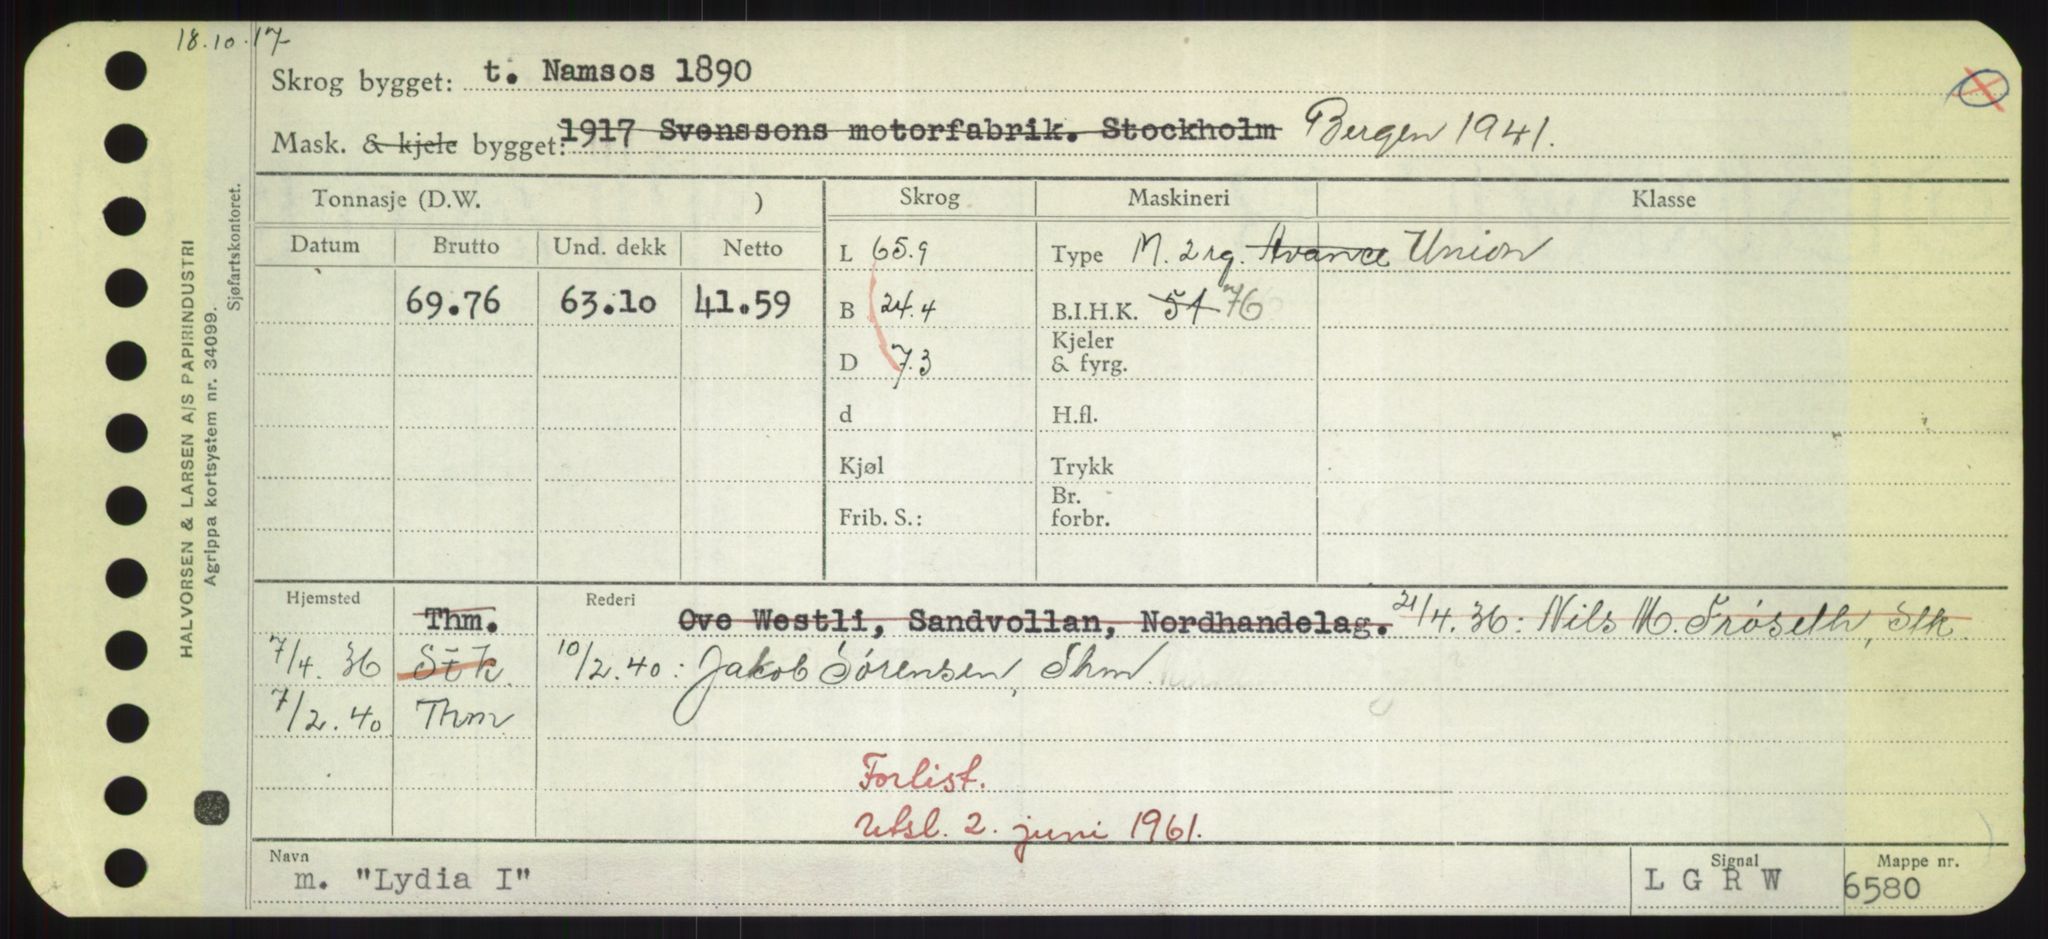 18.10.17
Skrog bygget: t. Namsos 1890
Mask. & kjele bygget: 1917 Svenssons motorfabrik. Stockholm Bergen 1941.
Tonnasje (D.W. ) Skrog Maskineri Klasse
Datum Brutto Und. dekk Netto L 65.9 Type M. 2 rg. Avance Union
69.76 63.10 41.59 B 24.4 B.I.H.K. 51 76
D 7.3 Kjeler & fyrg.
d H.fl.
Kjøl Trykk
Frib. S.: Br. forbr.
Hjemsted Thm. Rederi Ove Westli, Sandvollan, Nordhandelag. 21/4.36: Nils M. Frøseth, Stk.
7/4.36 Stk. 10/2.40: Jakob Sørensen, Thm.
7/2.40 Thm
Forlist.
Utsl. 2. juni 1961.
Navn m. "Lydia I" Signal L G R W Mappe nr. 6580
HALVORSEN & LARSEN A/S PAPIRINDUSTRI
Agrippa kortsystem nr. 34099.
Sjøfartskontoret.